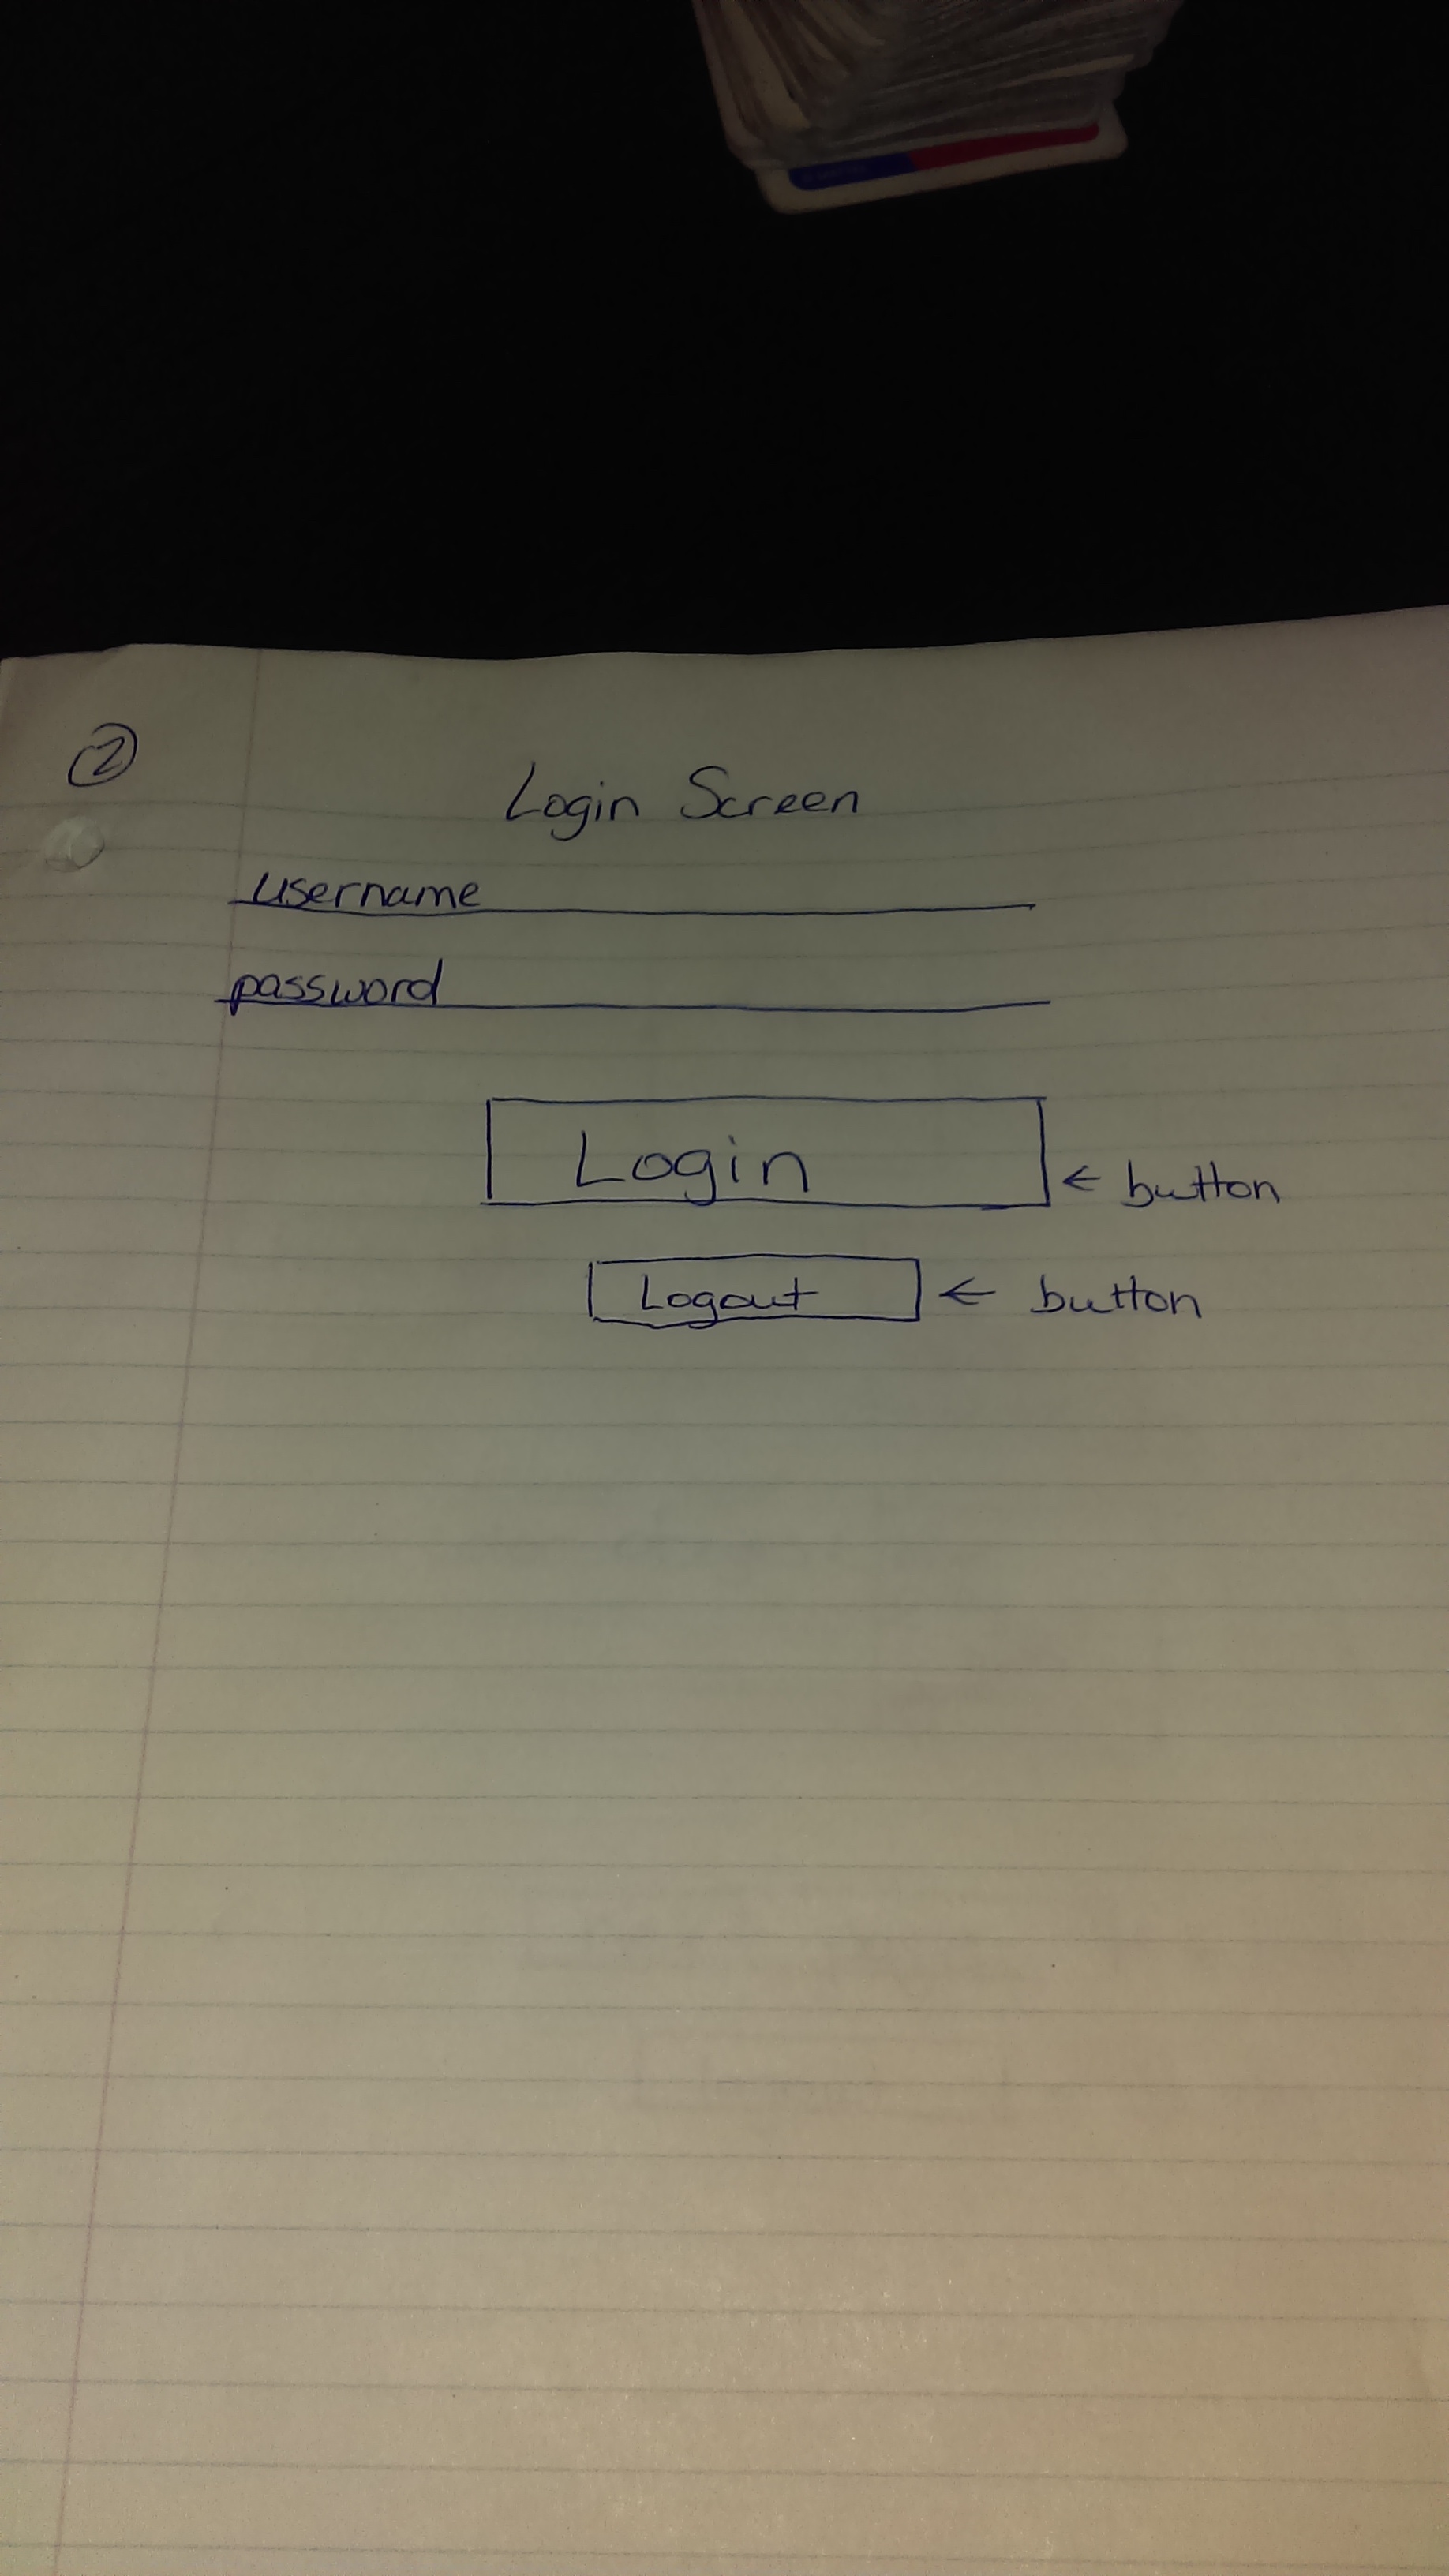 2
Login Screen
username
password
Login
← button
Logout
← button